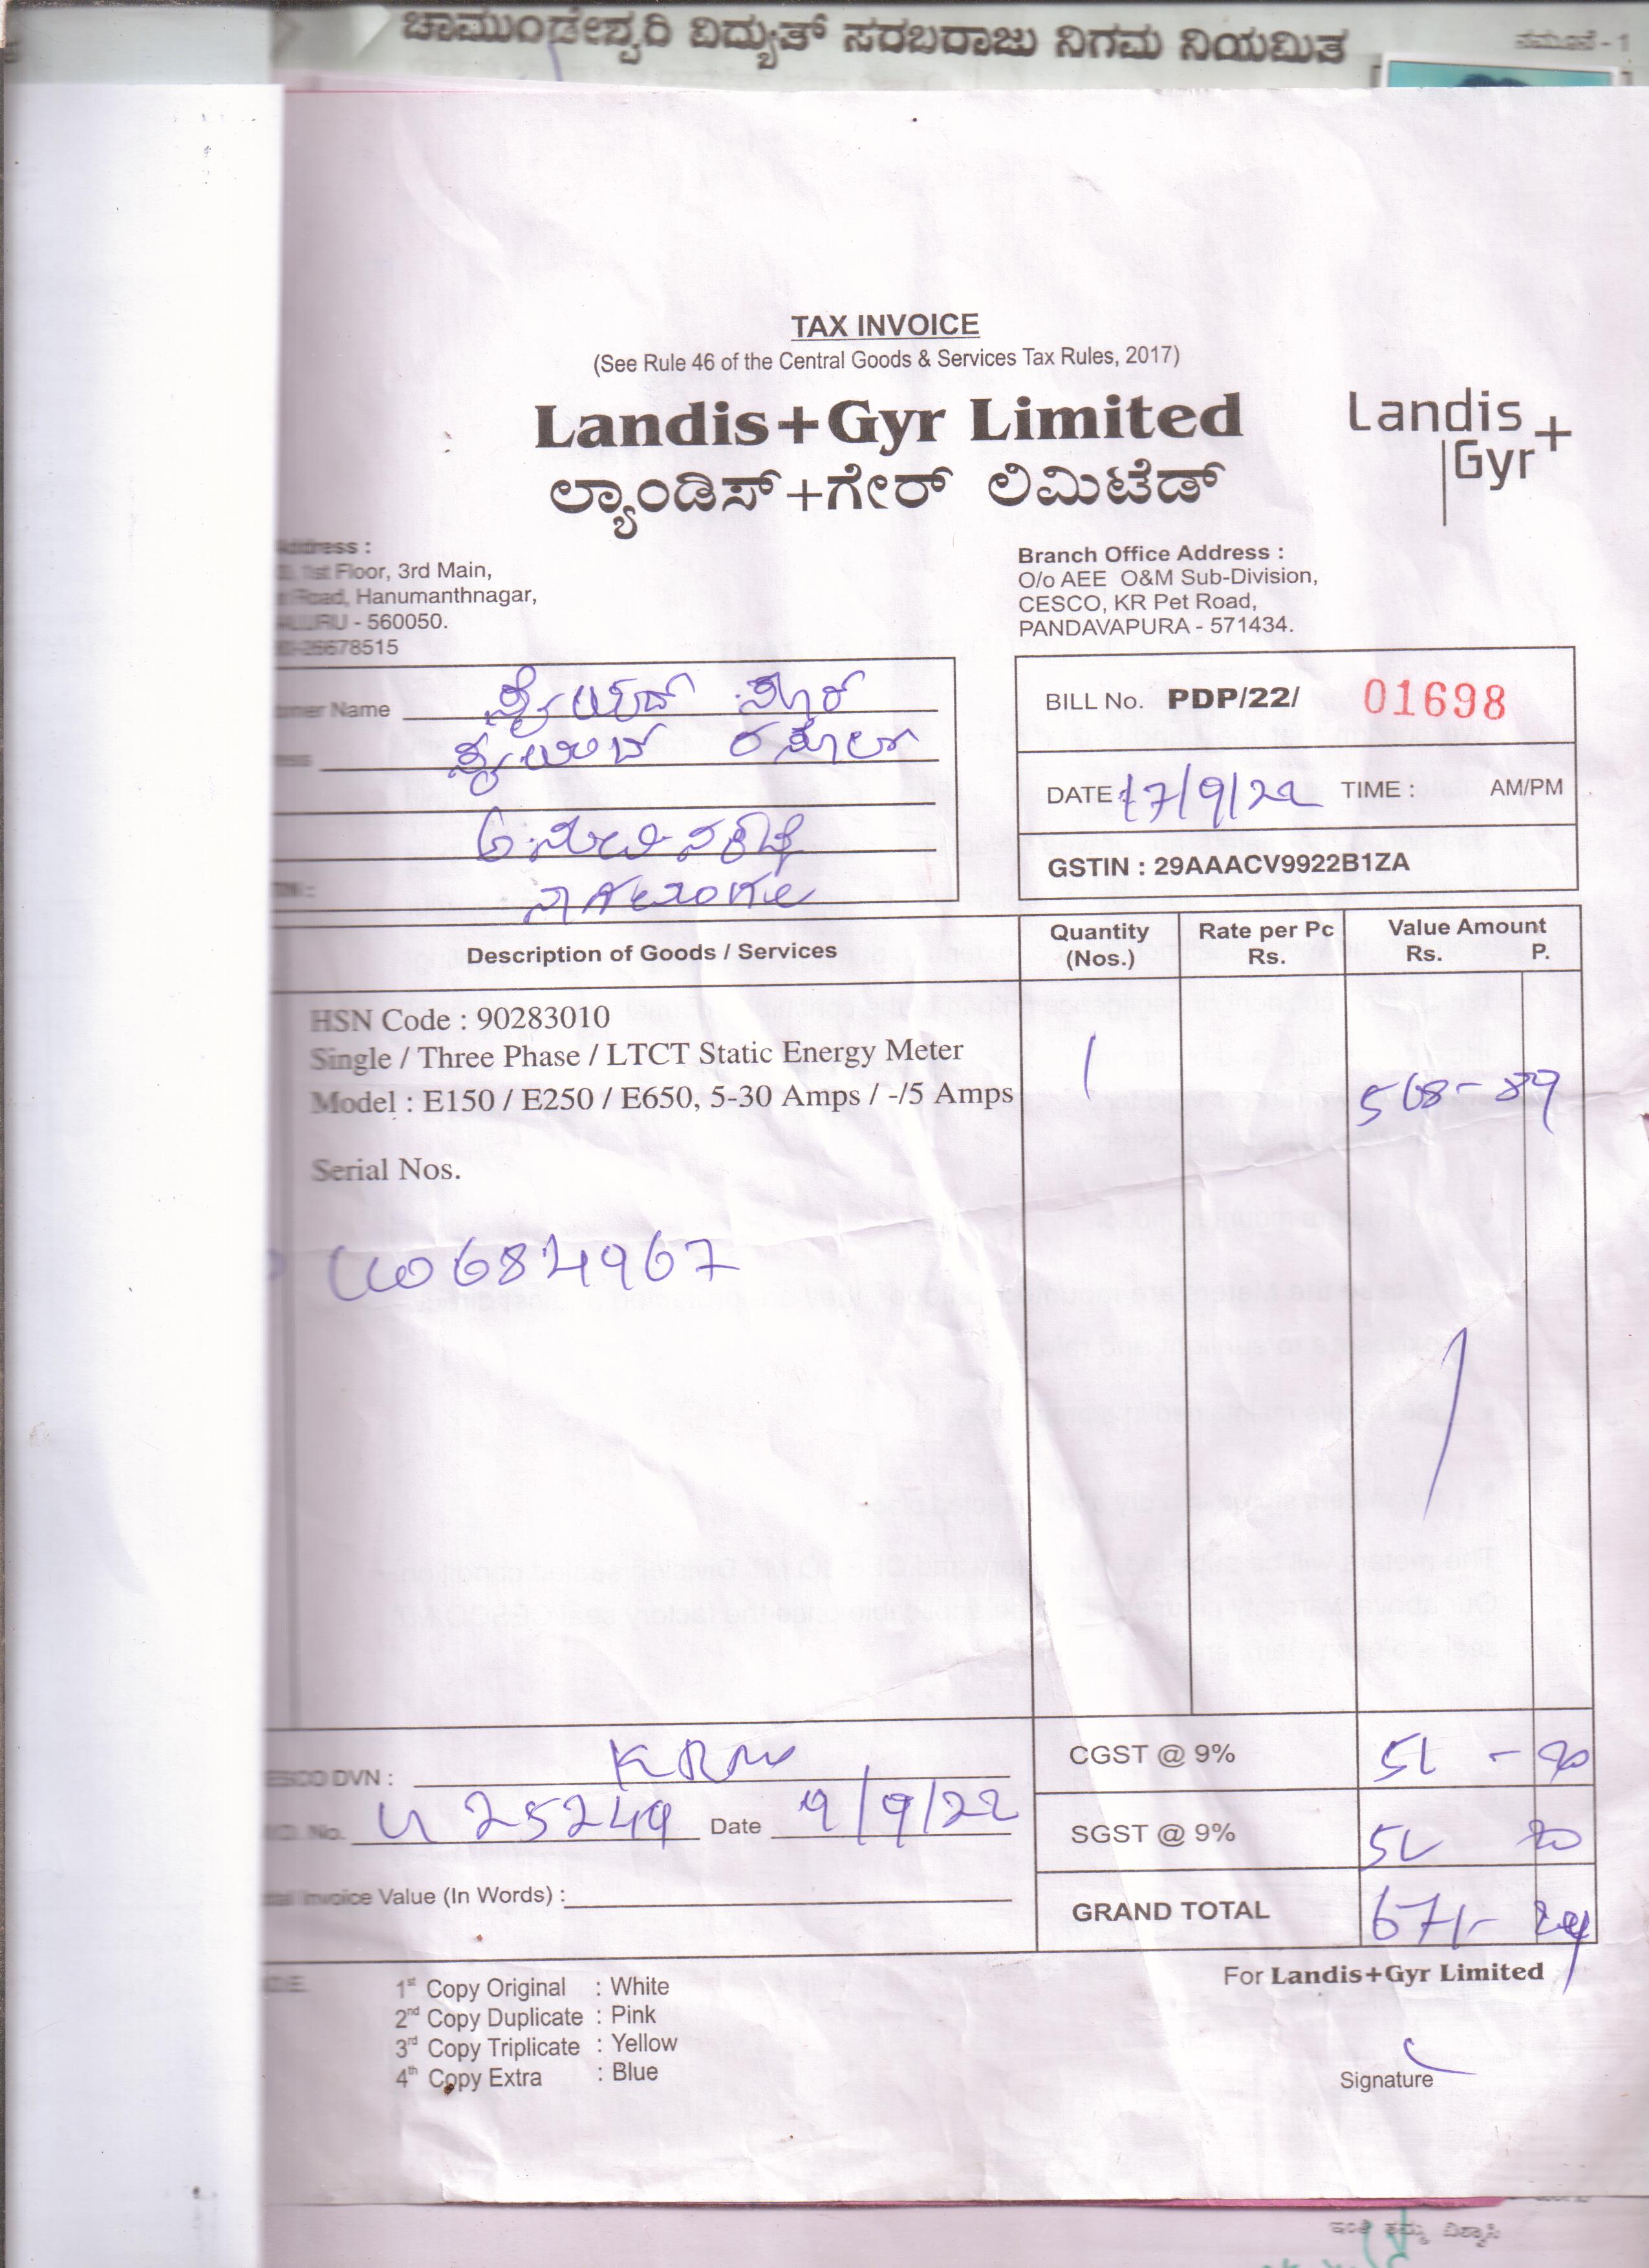 ಚಾಮುಂಡೇಶ್ವರಿ ವಿದ್ಯುತ್ ಸರಬರಾಜು ನಿಗಮ ನಿಯಮಿತ
ನಮೂನೆ - 1
TAX INVOICE
(See Rule 46 of the Central Goods & Services Tax Rules, 2017)
Landis+Gyr Limited
ಲ್ಯಾಂಡಿಸ್+ಗೇರ್ ಲಿಮಿಟೆಡ್
Landis
Gyr+
Address :
1st Floor, 3rd Main,
Road, Hanumanthnagar,
- 560050.
26678515
Branch Office Address :
O/o AEE O&M Sub-Division,
CESCO, KR Pet Road,
PANDAVAPURA - 571434.
Name ಸೈಯದ್
ಸೈಯದ್ ರಸೂಲ್
BILL No. PDP/22/ 01698
DATE 17/9/22 TIME : AM/PM
GSTIN : 29AAACV9922B1ZA
Description of Goods / Services
Quantity (Nos.)
Rate per Pc Rs.
Value Amount Rs. P.
HSN Code : 90283010
Single / Three Phase / LTCT Static Energy Meter
Model : E150 / E250 / E650, 5-30 Amps / -/5 Amps
1
568-89
Serial Nos.
6824967
DVN : KRN
No. 25249 Date 9/9/22
Invoice Value (In Words) :
CGST @ 9% 51 - 20
SGST @ 9% 51 20
GRAND TOTAL 671- 29
1st Copy Original : White
2nd Copy Duplicate : Pink
3rd Copy Triplicate : Yellow
4th Copy Extra : Blue
For Landis+Gyr Limited
Signature
ಇಂತಿ ತಮ್ಮ ವಿಶ್ವಾಸಿ